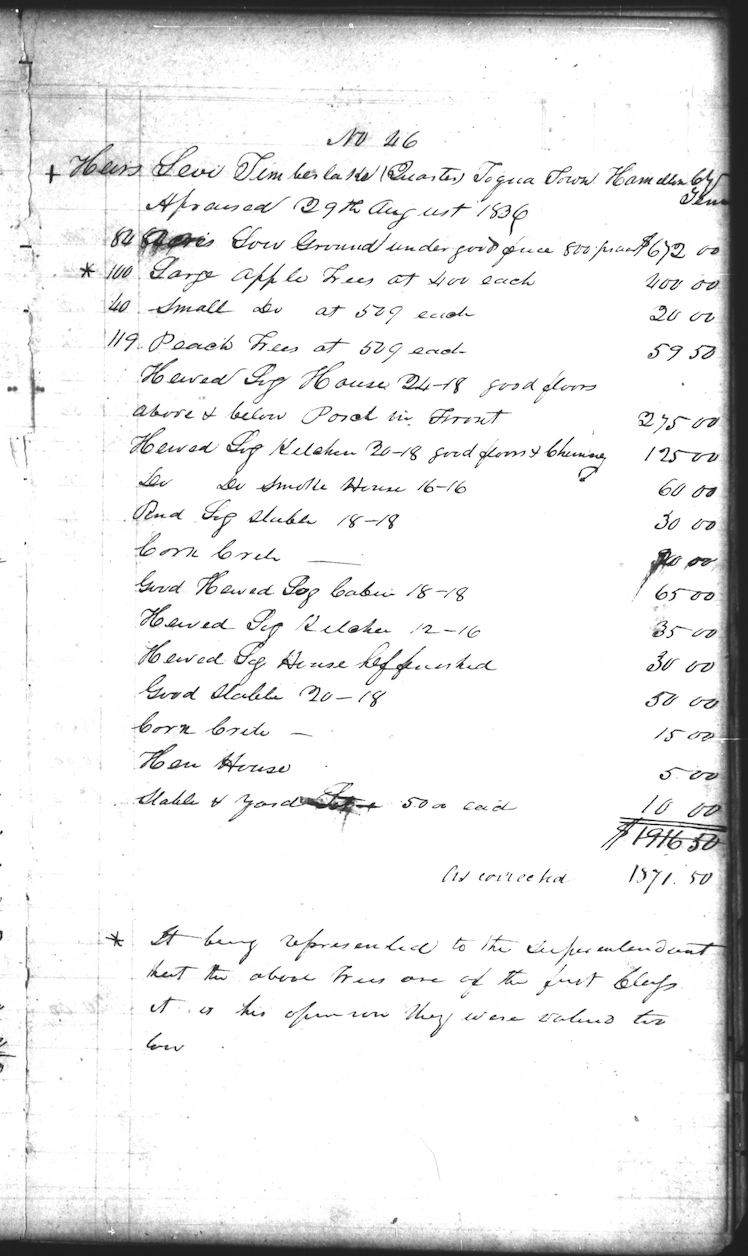 No 46
+ Heirs Levi Timberlake (Quarter) Toqua Town Hamilton Cty Tenn
Apraised 29th August 1836
84 Acres Low Ground under good fence 800 pr acre $672 00
* 100 Large Apple Trees at 400 each 400 00
40 Small Do at 50¢ each 20 00
119 Peach Trees at 50¢ each 59 50
Hewed Log House 24-18 good floors
above & below Porch in Front 275 00
Hewed Log Kitchen 20-18 good floors & Chimney 125 00
Do Do Smoke House 16-16 60 00
Rnd Log Stable 18-18 30 00
Corn Crib — 20 00
Good Hewed Log Cabin 18-18 65 00
Hewed Log Kitchen 12-16 35 00
Hewed Log House half finished 30 00
Good Stable 20-18 50 00
Corn Crib — 15 00
Hen House 5 00
Stable & Yard 500 each 10 00
$1916 50
As corrected 1871.50
* It being represented to the Superintendant
that the above trees are of the first Class
it is his opinion they were valued too
low